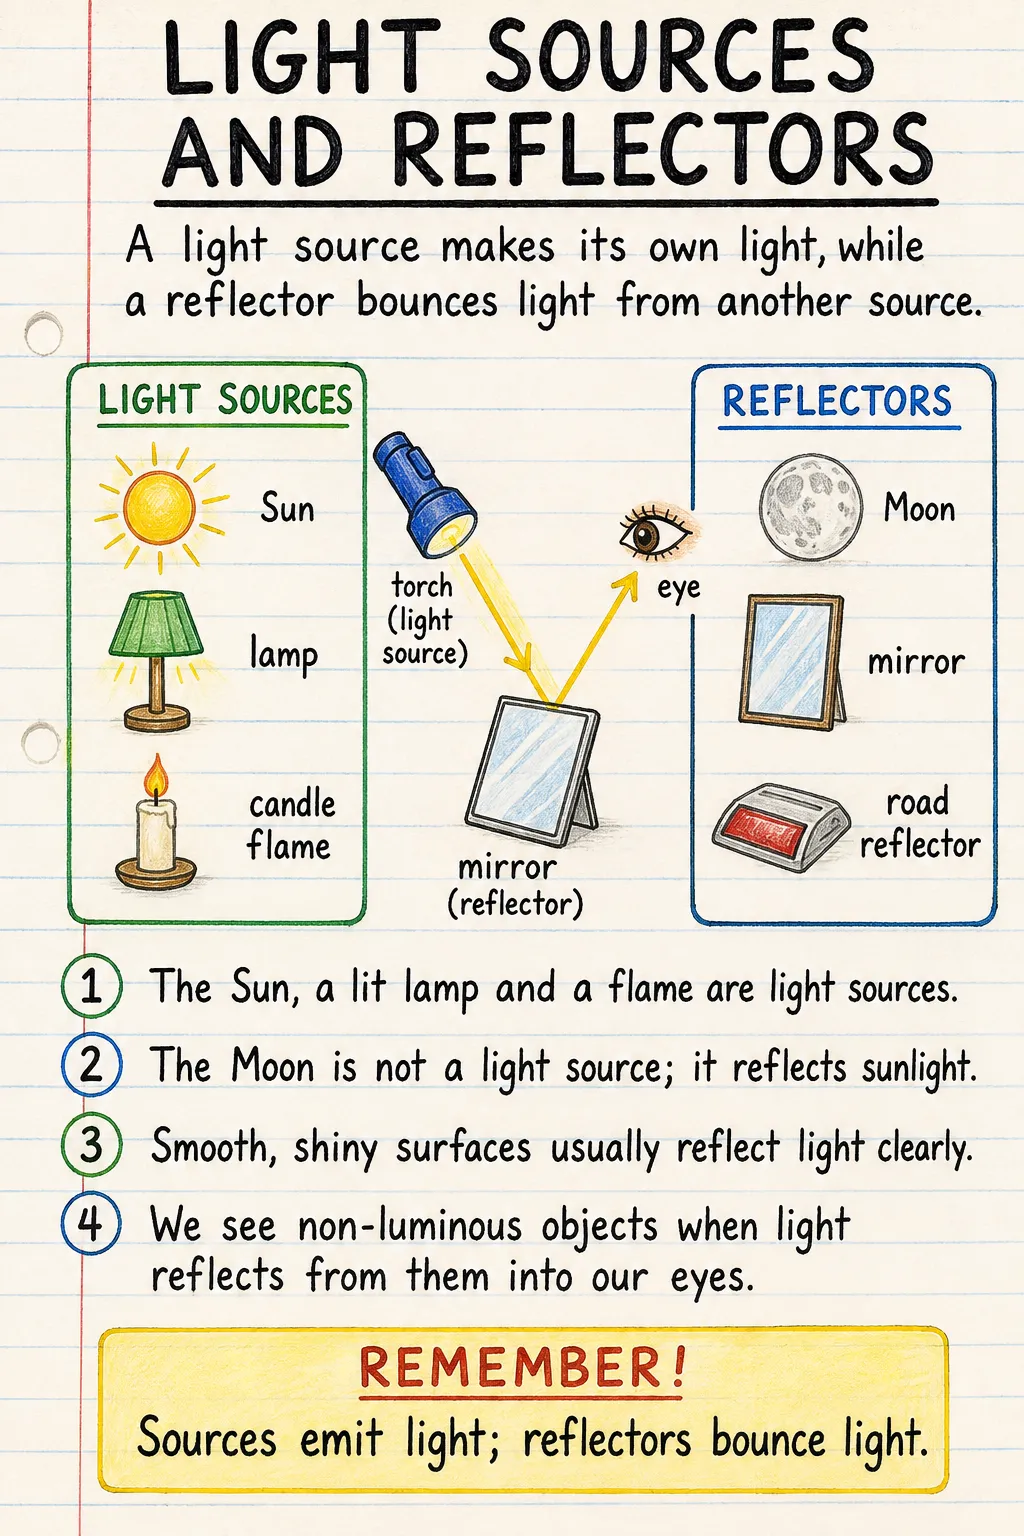 LIGHT SOURCES
AND REFLECTORS
A light source makes its own light, while
a reflector bounces light from another source.
LIGHT SOURCES
Sun
lamp
candle
flame
torch
(light
source)
eye
mirror
(reflector)
REFLECTORS
Moon
mirror
road
reflector
1 The Sun, a lit lamp and a flame are light sources.
2 The Moon is not a light source; it reflects sunlight.
3 Smooth, shiny surfaces usually reflect light clearly.
4 We see non-luminous objects when light
reflects from them into our eyes.
REMEMBER!
Sources emit light; reflectors bounce light.